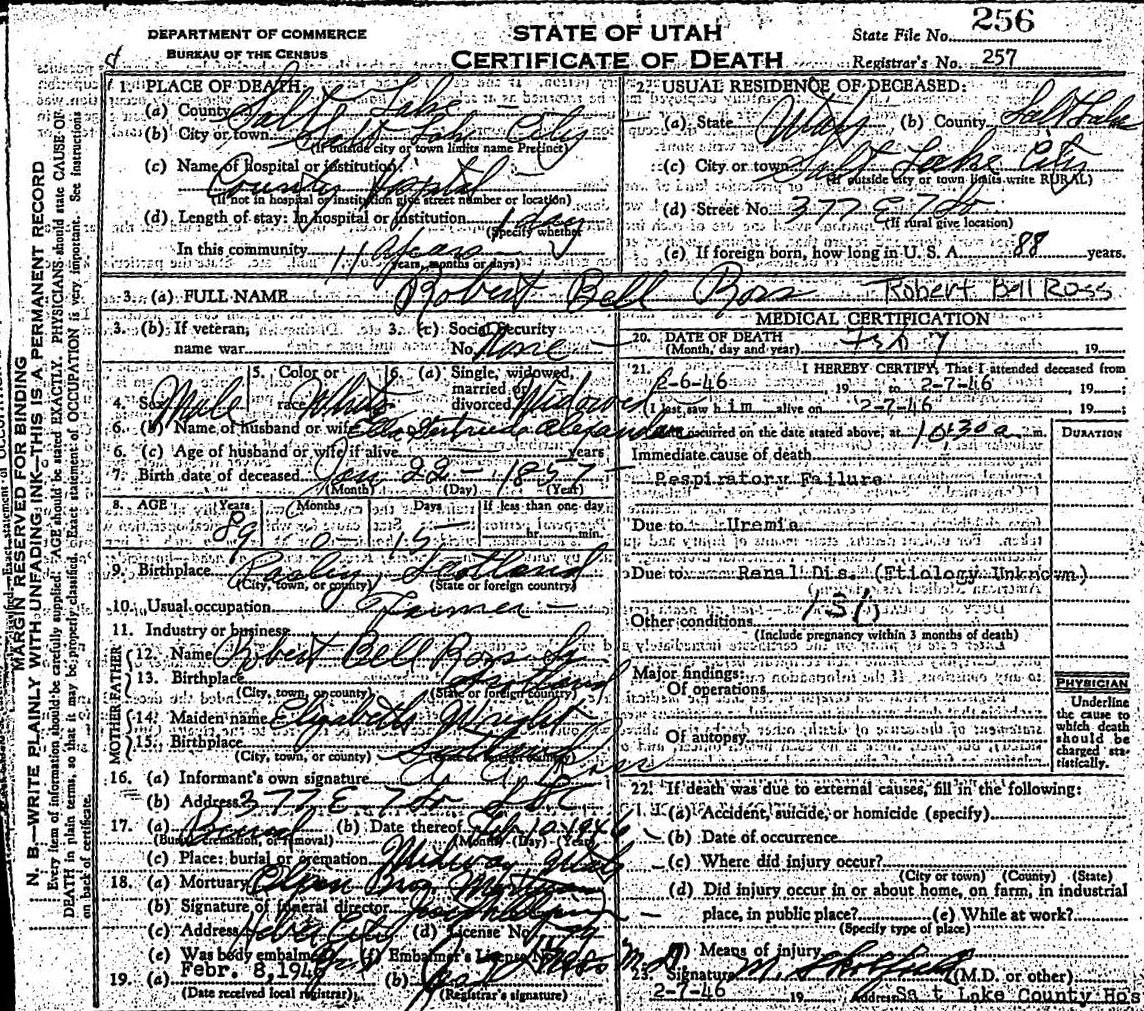 DEPARTMENT OF COMMERCE
BUREAU OF THE CENSUS
STATE OF UTAH
CERTIFICATE OF DEATH
State File No. 256
Registrar's No. 257
MARGIN RESERVED FOR BINDING
N. B.—WRITE PLAINLY WITH UNFADING INK—THIS IS A PERMANENT RECORD
Every item of information should be carefully supplied. AGE should be stated EXACTLY. PHYSICIANS should state CAUSE OF
DEATH in plain terms, so that it may be properly classified. Exact statement of OCCUPATION is very important. See instructions
on back of certificate.
1. PLACE OF DEATH:
(a) County Salt Lake
(b) City or town Salt Lake City
(If outside city or town limits name Precinct)
(c) Name of hospital or institution:
County Hospital
(If not in hospital or institution give street number or location)
(d) Length of stay: In hospital or institution 1 day
(Specify whether
In this community 11 years
years, months or days)
2. USUAL RESIDENCE OF DECEASED:
(a) State Utah (b) County Salt Lake
(c) City or town Salt Lake City
(If outside city or town limits write RURAL)
(d) Street No. 377 E 7 So
(If rural give location)
(e) If foreign born, how long in U. S. A. 88 years.
3. (a) FULL NAME Robert Bell Ross Robert Bell Ross
3. (b) If veteran, name war
3. (c) Social Security No. None
4. Sex Male
5. Color or race White
6. (a) Single, widowed, married or divorced Widowed
6. (b) Name of husband or wife Gertrude Alexander
6. (c) Age of husband or wife if alive years
7. Birth date of deceased Jan 22 - 1857
(Month) (Day) (Year)
8. AGE Years Months Days If less than one day
89 0 15 hr. min.
9. Birthplace Scotland
(City, town, or county) (State or foreign country)
10. Usual occupation Farmer
11. Industry or business
FATHER
12. Name Robert Bell Ross
13. Birthplace Scotland
(City, town, or county) (State or foreign country)
MOTHER
14. Maiden name Elizabeth Wright
15. Birthplace Scotland
(City, town, or county) (State or foreign country)
16. (a) Informant's own signature Ross
(b) Address 377 E 7 So
17. (a) Burial (b) Date thereof Feb 10 1946
(Burial, cremation, or removal) (Month) (Day) (Year)
(c) Place: burial or cremation Midway Utah
18. (a) Mortuary Olpin Bros Mortuary
(b) Signature of funeral director
(c) Address Heber City (d) License No.
(e) Was body embalmed? Yes (f) Embalmer's License No.
19. (a) Febr. 8, 1946 (b)
(Date received local registrar) (Registrar's signature)
MEDICAL CERTIFICATION
20. DATE OF DEATH
(Month, day and year) Feb 7 19
21. I HEREBY CERTIFY, That I attended deceased from
2-6-46 19 to 2-7-46 , 19 ;
I last saw him alive on 2-7-46 , 19 ;
occurred on the date stated above, at 10:30 a. m.
DURATION
Immediate cause of death
Respiratory Failure
Due to Uremia
Due to Renal Dis. (Etiology Unknown)
Other conditions
(Include pregnancy within 3 months of death)
Major findings:
Of operations
Of autopsy
PHYSICIAN
Underline
the cause to
which death
should be
charged sta-
tistically.
22. If death was due to external causes, fill in the following:
(a) Accident, suicide, or homicide (specify)
(b) Date of occurrence
(c) Where did injury occur?
(City or town) (County) (State)
(d) Did injury occur in or about home, on farm, in industrial
place, in public place? (e) While at work?
(Specify type of place)
(f) Means of injury
23. Signature (M.D. or other)
2-7-46 19 Address Sa t Lake County Hos